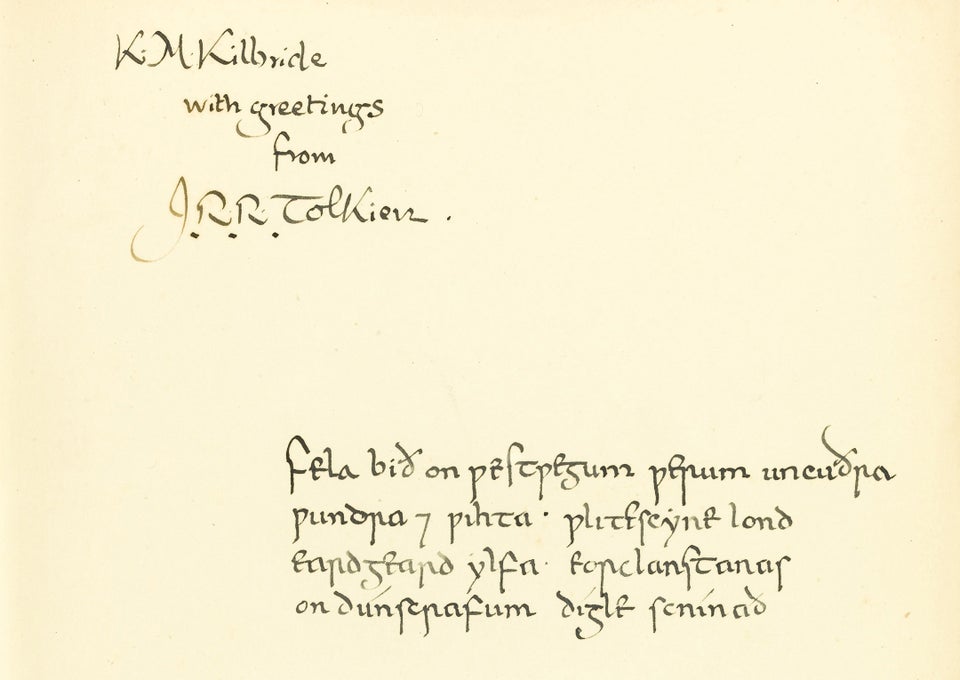 K. M. Kilbride
with greetings
from
J. R. R. Tolkien .
Fela bið on ƿestƿegum ƿerum uncúðra
ƿundra ⁊ ƿihta · ƿlitescýne lond
eardgeard ylfa · eorclanstanas
on dúnscrafum dígle scnínað